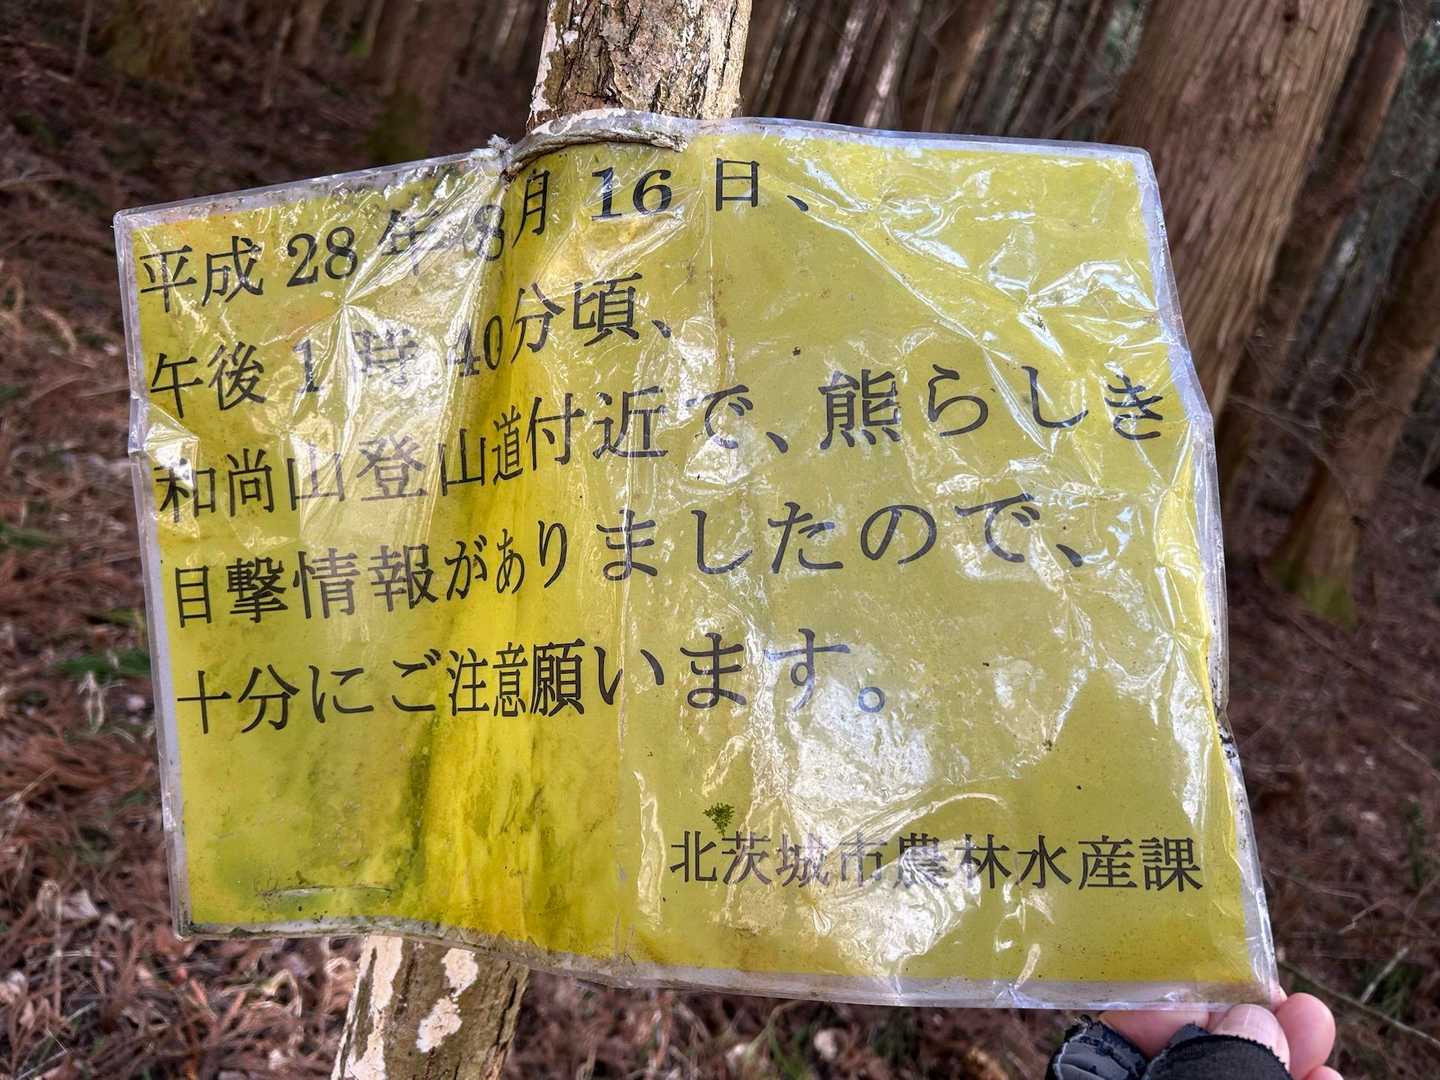 平成28年8月16日、
午後1時40分頃、
和尚山登山道付近で、熊らしき
目撃情報がありましたので、
十分にご注意願います。
北茨城市農林水産課